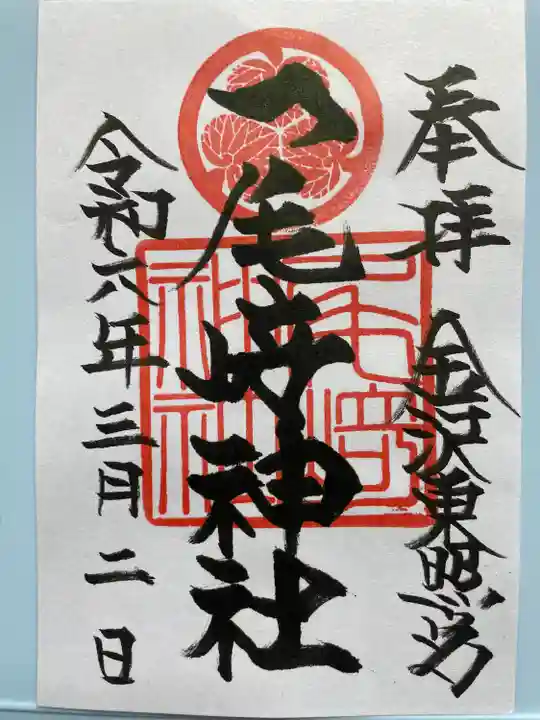 奉拝 金沢東照宮
尾崎神社
令和六年三月二日